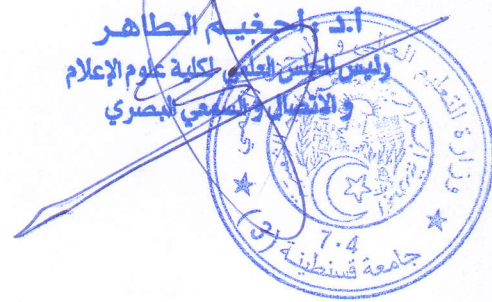 أ.د أجغيم الطاهر
رئيس المجلس العلمي لكلية علوم الإعلام
و الاتصال و السمعي البصري
وزارة التعليم العالي و
جامعة قسنطينة (3)
7.4